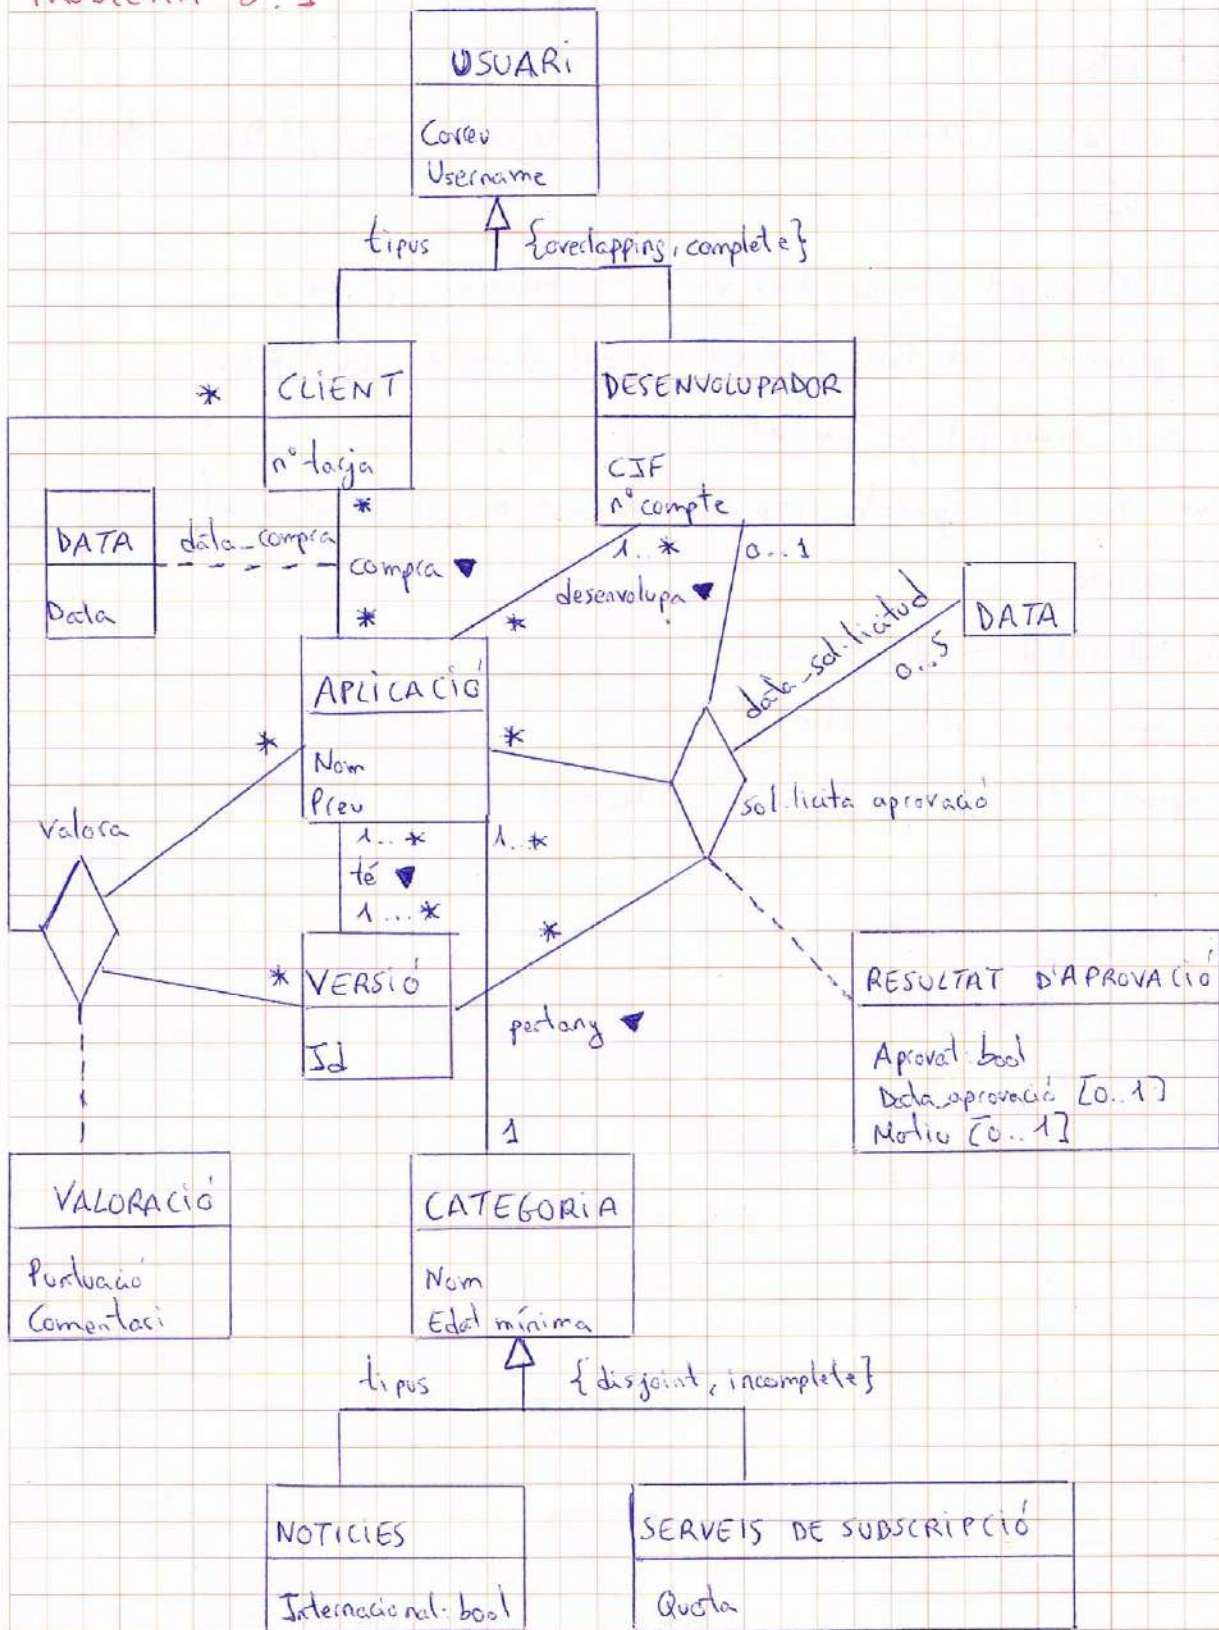 PROBLEMA
USUARi
Correu
Username
tipus
{overlapping, complete}
*
CLiENT
nº tarja
DESENVOLUPADOR
CIF
nº compte
DATA
Data
data_compra
*
compra ▼
*
1..*
desenvolupa ▼
*
0..1
DATA
data_sol·licitud
0..5
APLICACiÓ
Nom
Preu
*
*
sol·licita aprovació
valora
1..*
té ▼
1...*
1..*
*
*
VERSiÓ
Id
pertany ▼
1
RESULTAT D'APROVACiÓ
Aprovat: bool
Data_aprovació [0..1]
Motiu [0..1]
VALORACiÓ
Puntuació
Comentari
CATEGORiA
Nom
Edat mínima
tipus
{disjoint, incomplete}
NOTICIES
Internacional: bool
SERVEIS DE SUBSCRIPCiÓ
Quota